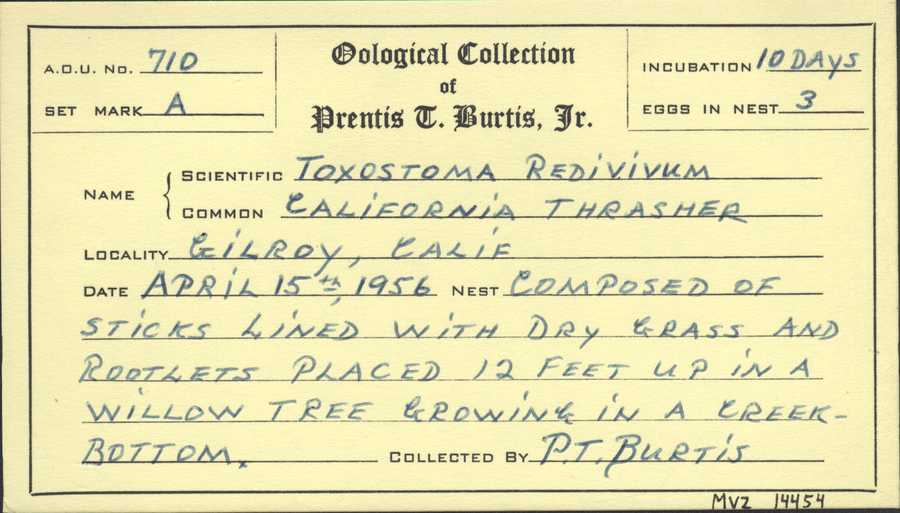 A.O.U. No. 710
SET MARK A
Oological Collection
of
Prentis T. Burtis, Jr.
INCUBATION 10 DAYS
EGGS IN NEST 3
NAME { SCIENTIFIC TOXOSTOMA REDIVIVUM
COMMON CALIFORNIA THRASHER
LOCALITY GILROY, CALIF
DATE APRIL 15th, 1956 NEST COMPOSED OF
STICKS LINED WITH DRY GRASS AND
ROOTLETS PLACED 12 FEET UP IN A
WILLOW TREE GROWING IN A CREEK-
BOTTOM. COLLECTED BY P.T. BURTIS
MVZ 14454